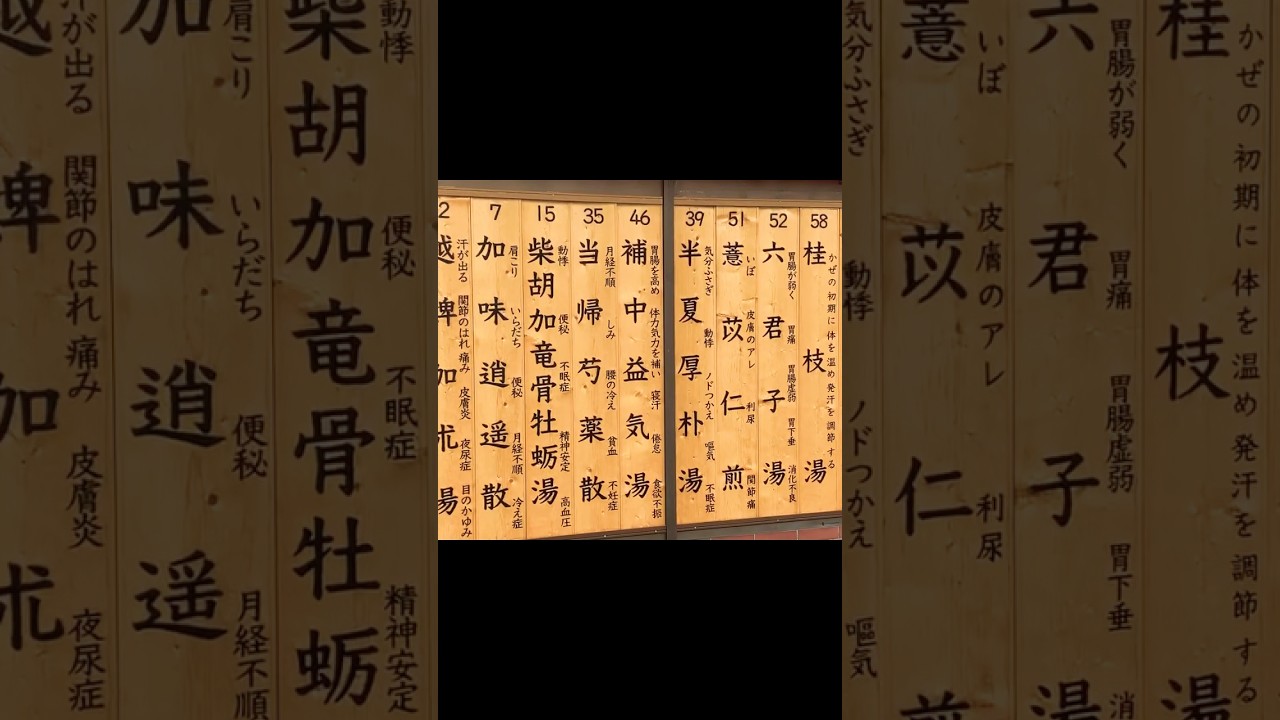 58
かぜの初期に 体を温め発汗を調節する
桂枝湯
52
胃腸が弱く 胃痛 胃腸虚弱 胃下垂 消化不良
六君子湯
51
いぼ 皮膚のアレ 利尿 関節痛
薏苡仁煎
39
気分ふさぎ 動悸 ノドつかえ 嘔気 不眠症
半夏厚朴湯
46
胃腸を高め 体力気力を補い 寝汗 倦怠 食欲不振
補中益気湯
35
月経不順 しみ 腰の冷え 貧血 不妊症
当帰芍薬散
15
動悸 便秘 不眠症 精神安定 高血圧
柴胡加竜骨牡蛎湯
7
肩こり いらだち 便秘 月経不順 冷え症
加味逍遥散
2
汗が出る 関節のはれ 痛み 皮膚炎 夜尿症 目のかゆみ
越婢加朮湯